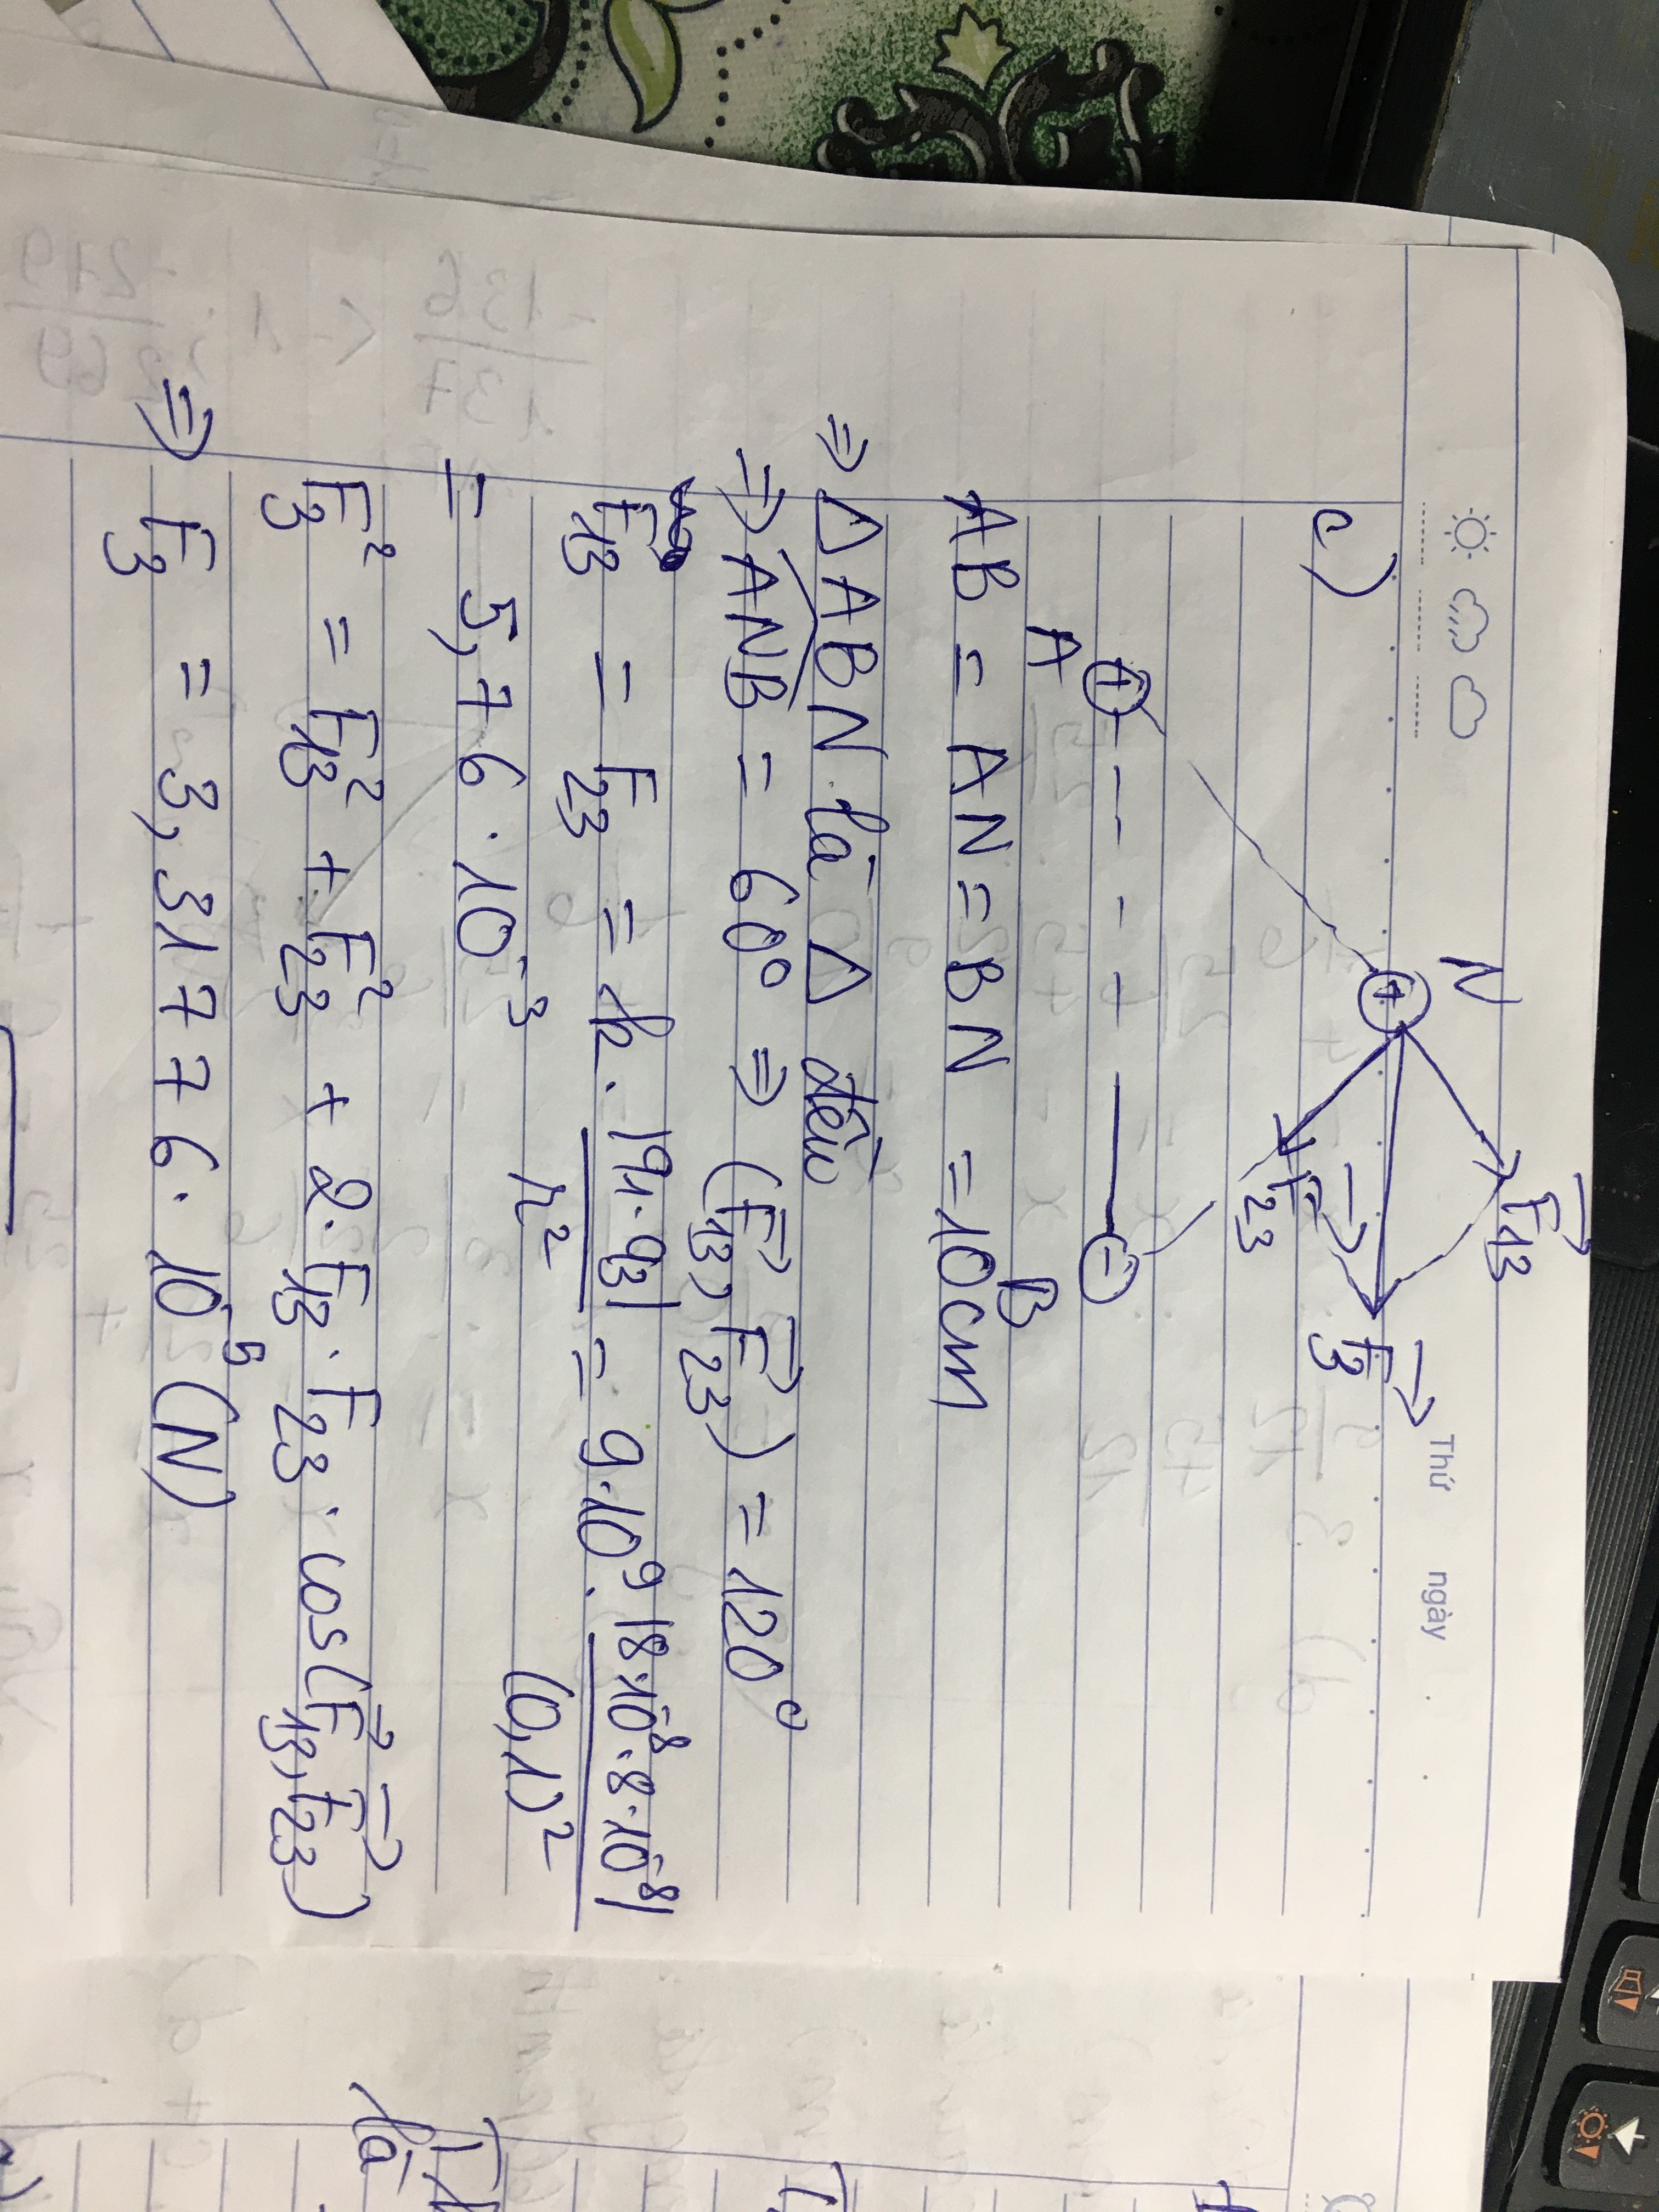 Thứ ngày
c)
N
F⃗13
F⃗23
F⃗3
A
B
AB = AN = BN = 10cm
⇒ ΔABN là Δ đều
⇒ ANB = 60° ⇒ (F⃗13, F⃗23) = 120°
F13 = F23 = k. |q1.q3| / r² = 9.10⁹. |8.10⁻⁸.8.10⁻⁸| / (0,1)²
= 5,76.10⁻³
F3² = F13² + F23² + 2.F13.F23.cos(F⃗13, F⃗23)
⇒ F3 = 3,31776.10⁻⁵ (N)
là